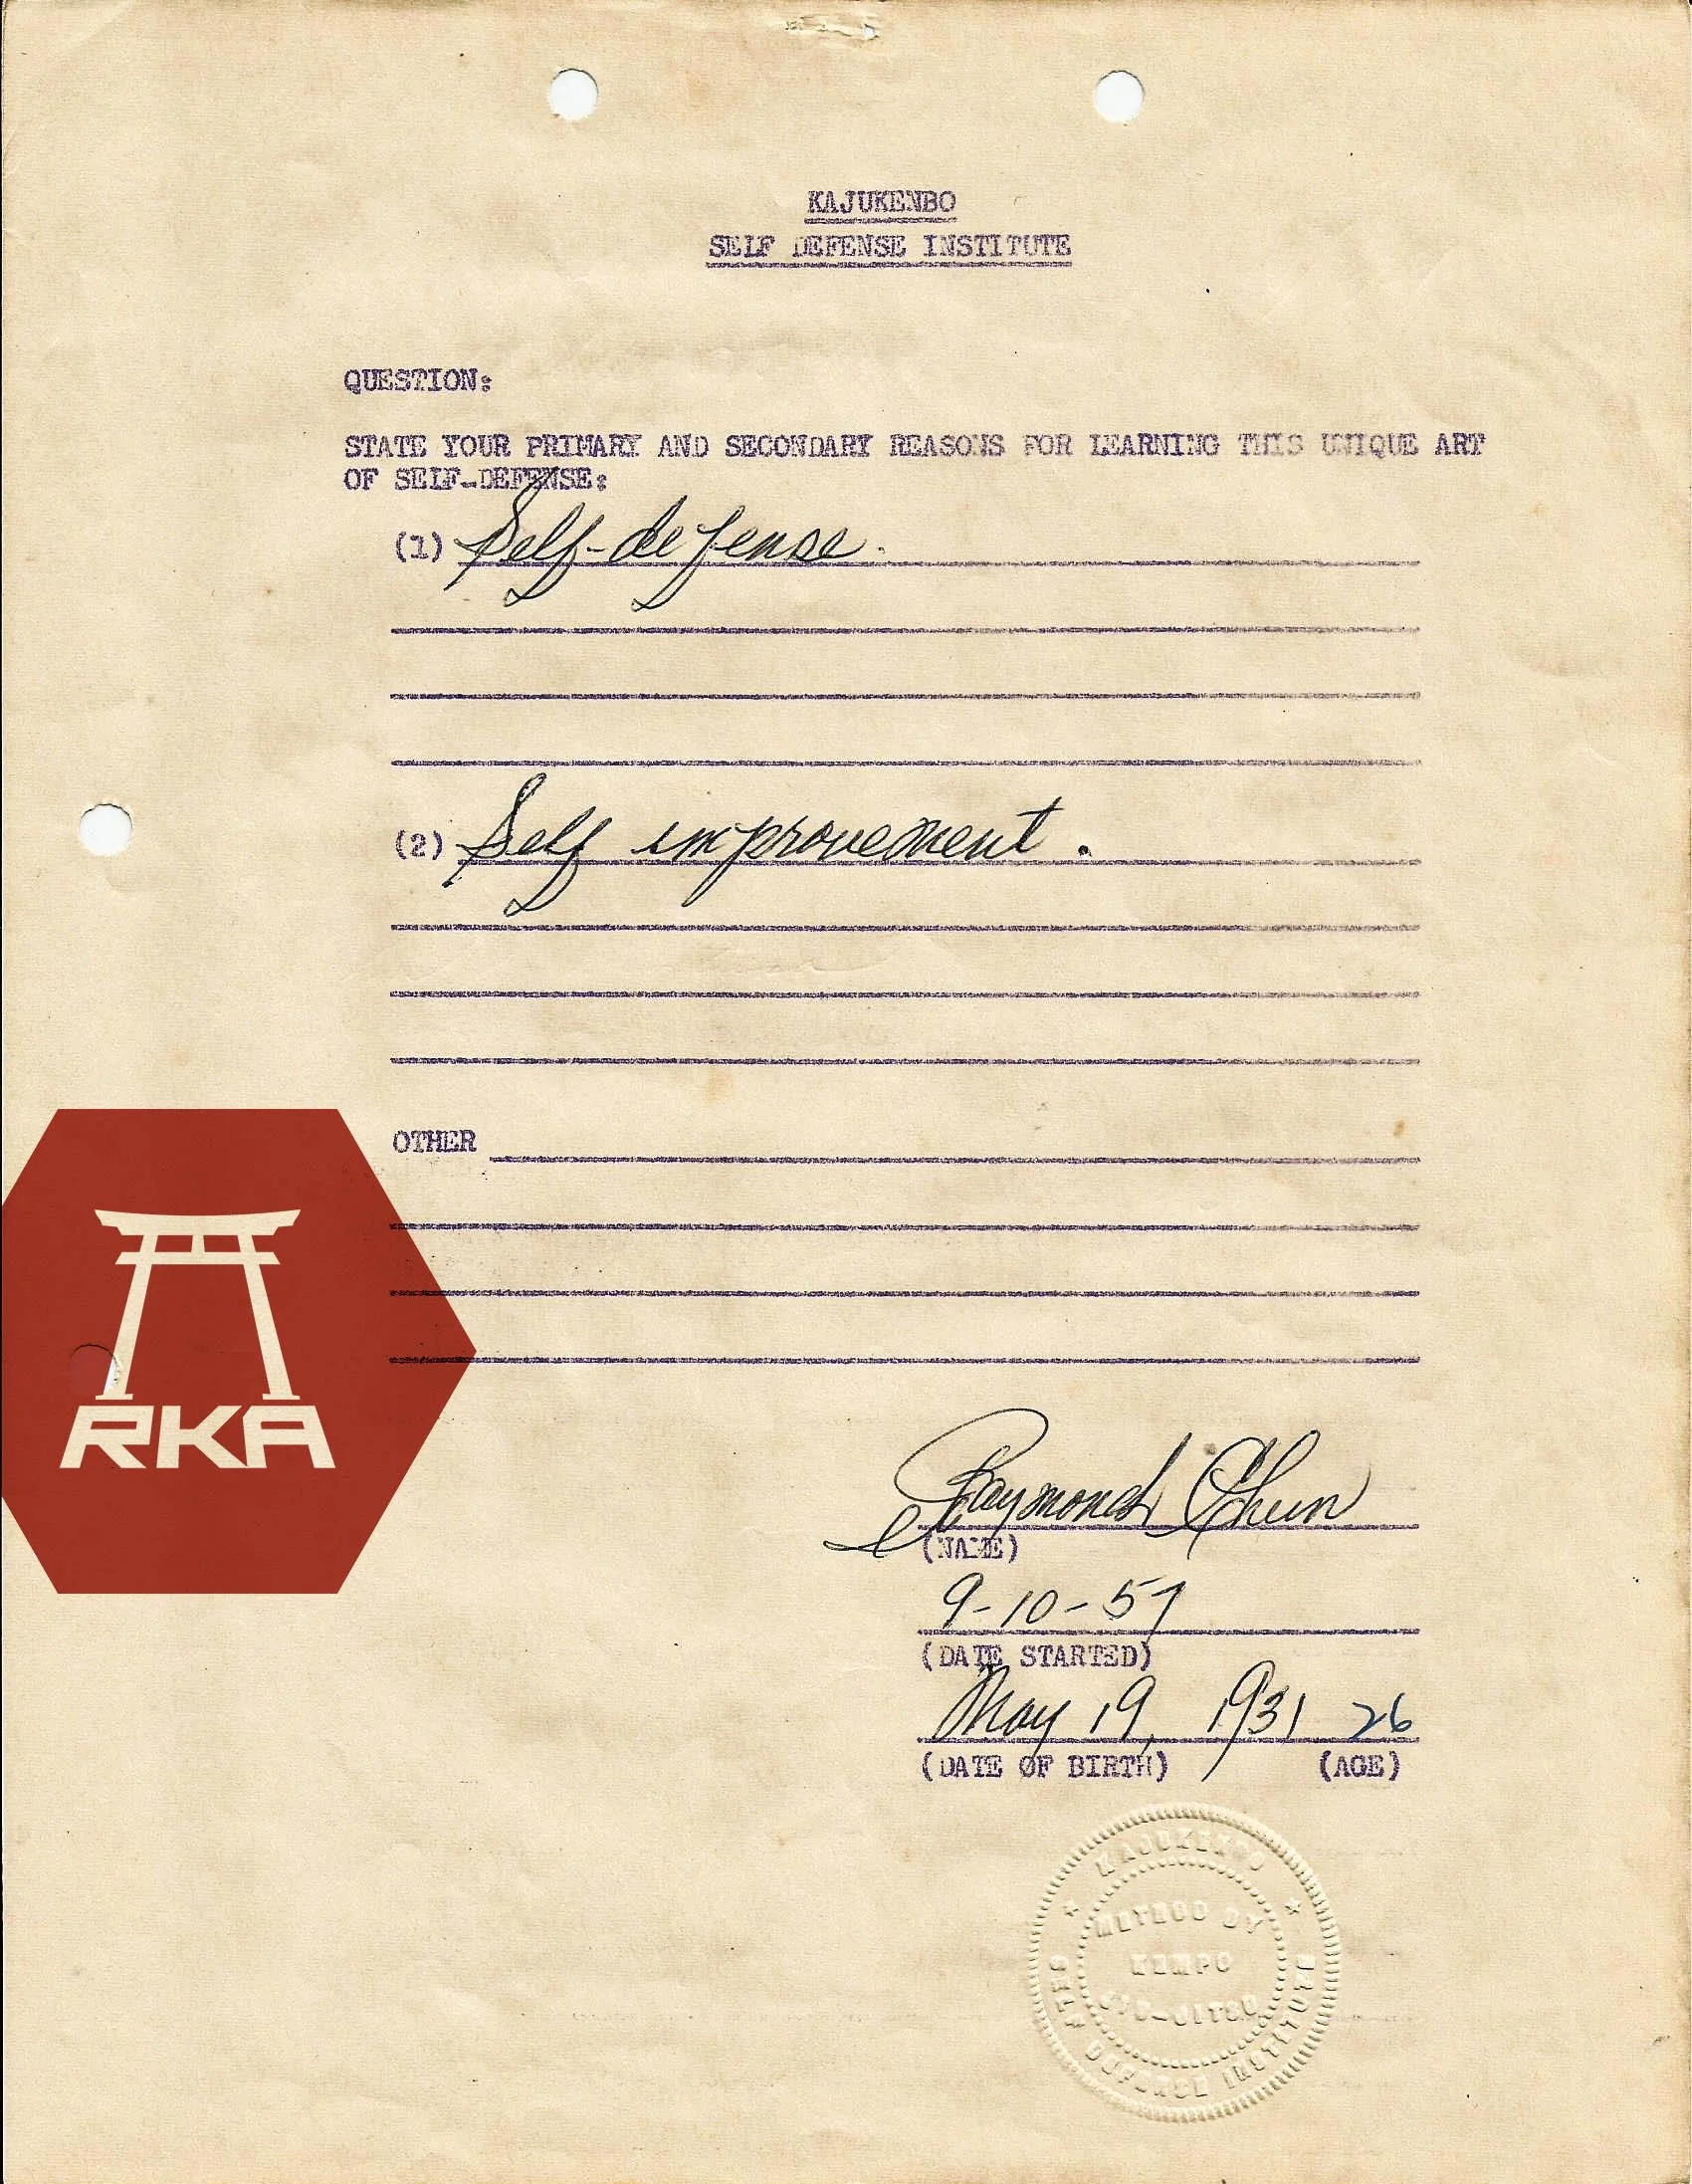 KAJUKENBO
SELF DEFENSE INSTITUTE
QUESTION:
STATE YOUR PRIMARY AND SECONDARY REASONS FOR LEARNING THIS UNIQUE ART
OF SELF-DEFENSE:
(1) Self-defense.
(2) Self improvement.
OTHER
RKA
Raymond Chun
(NAME)
9-10-57
(DATE STARTED)
May 19, 1931 26
(DATE OF BIRTH) (AGE)
KAJUKENBO
METHOD BY
KEMPO
JIU-JITSU
SELF DEFENSE INSTITUTE